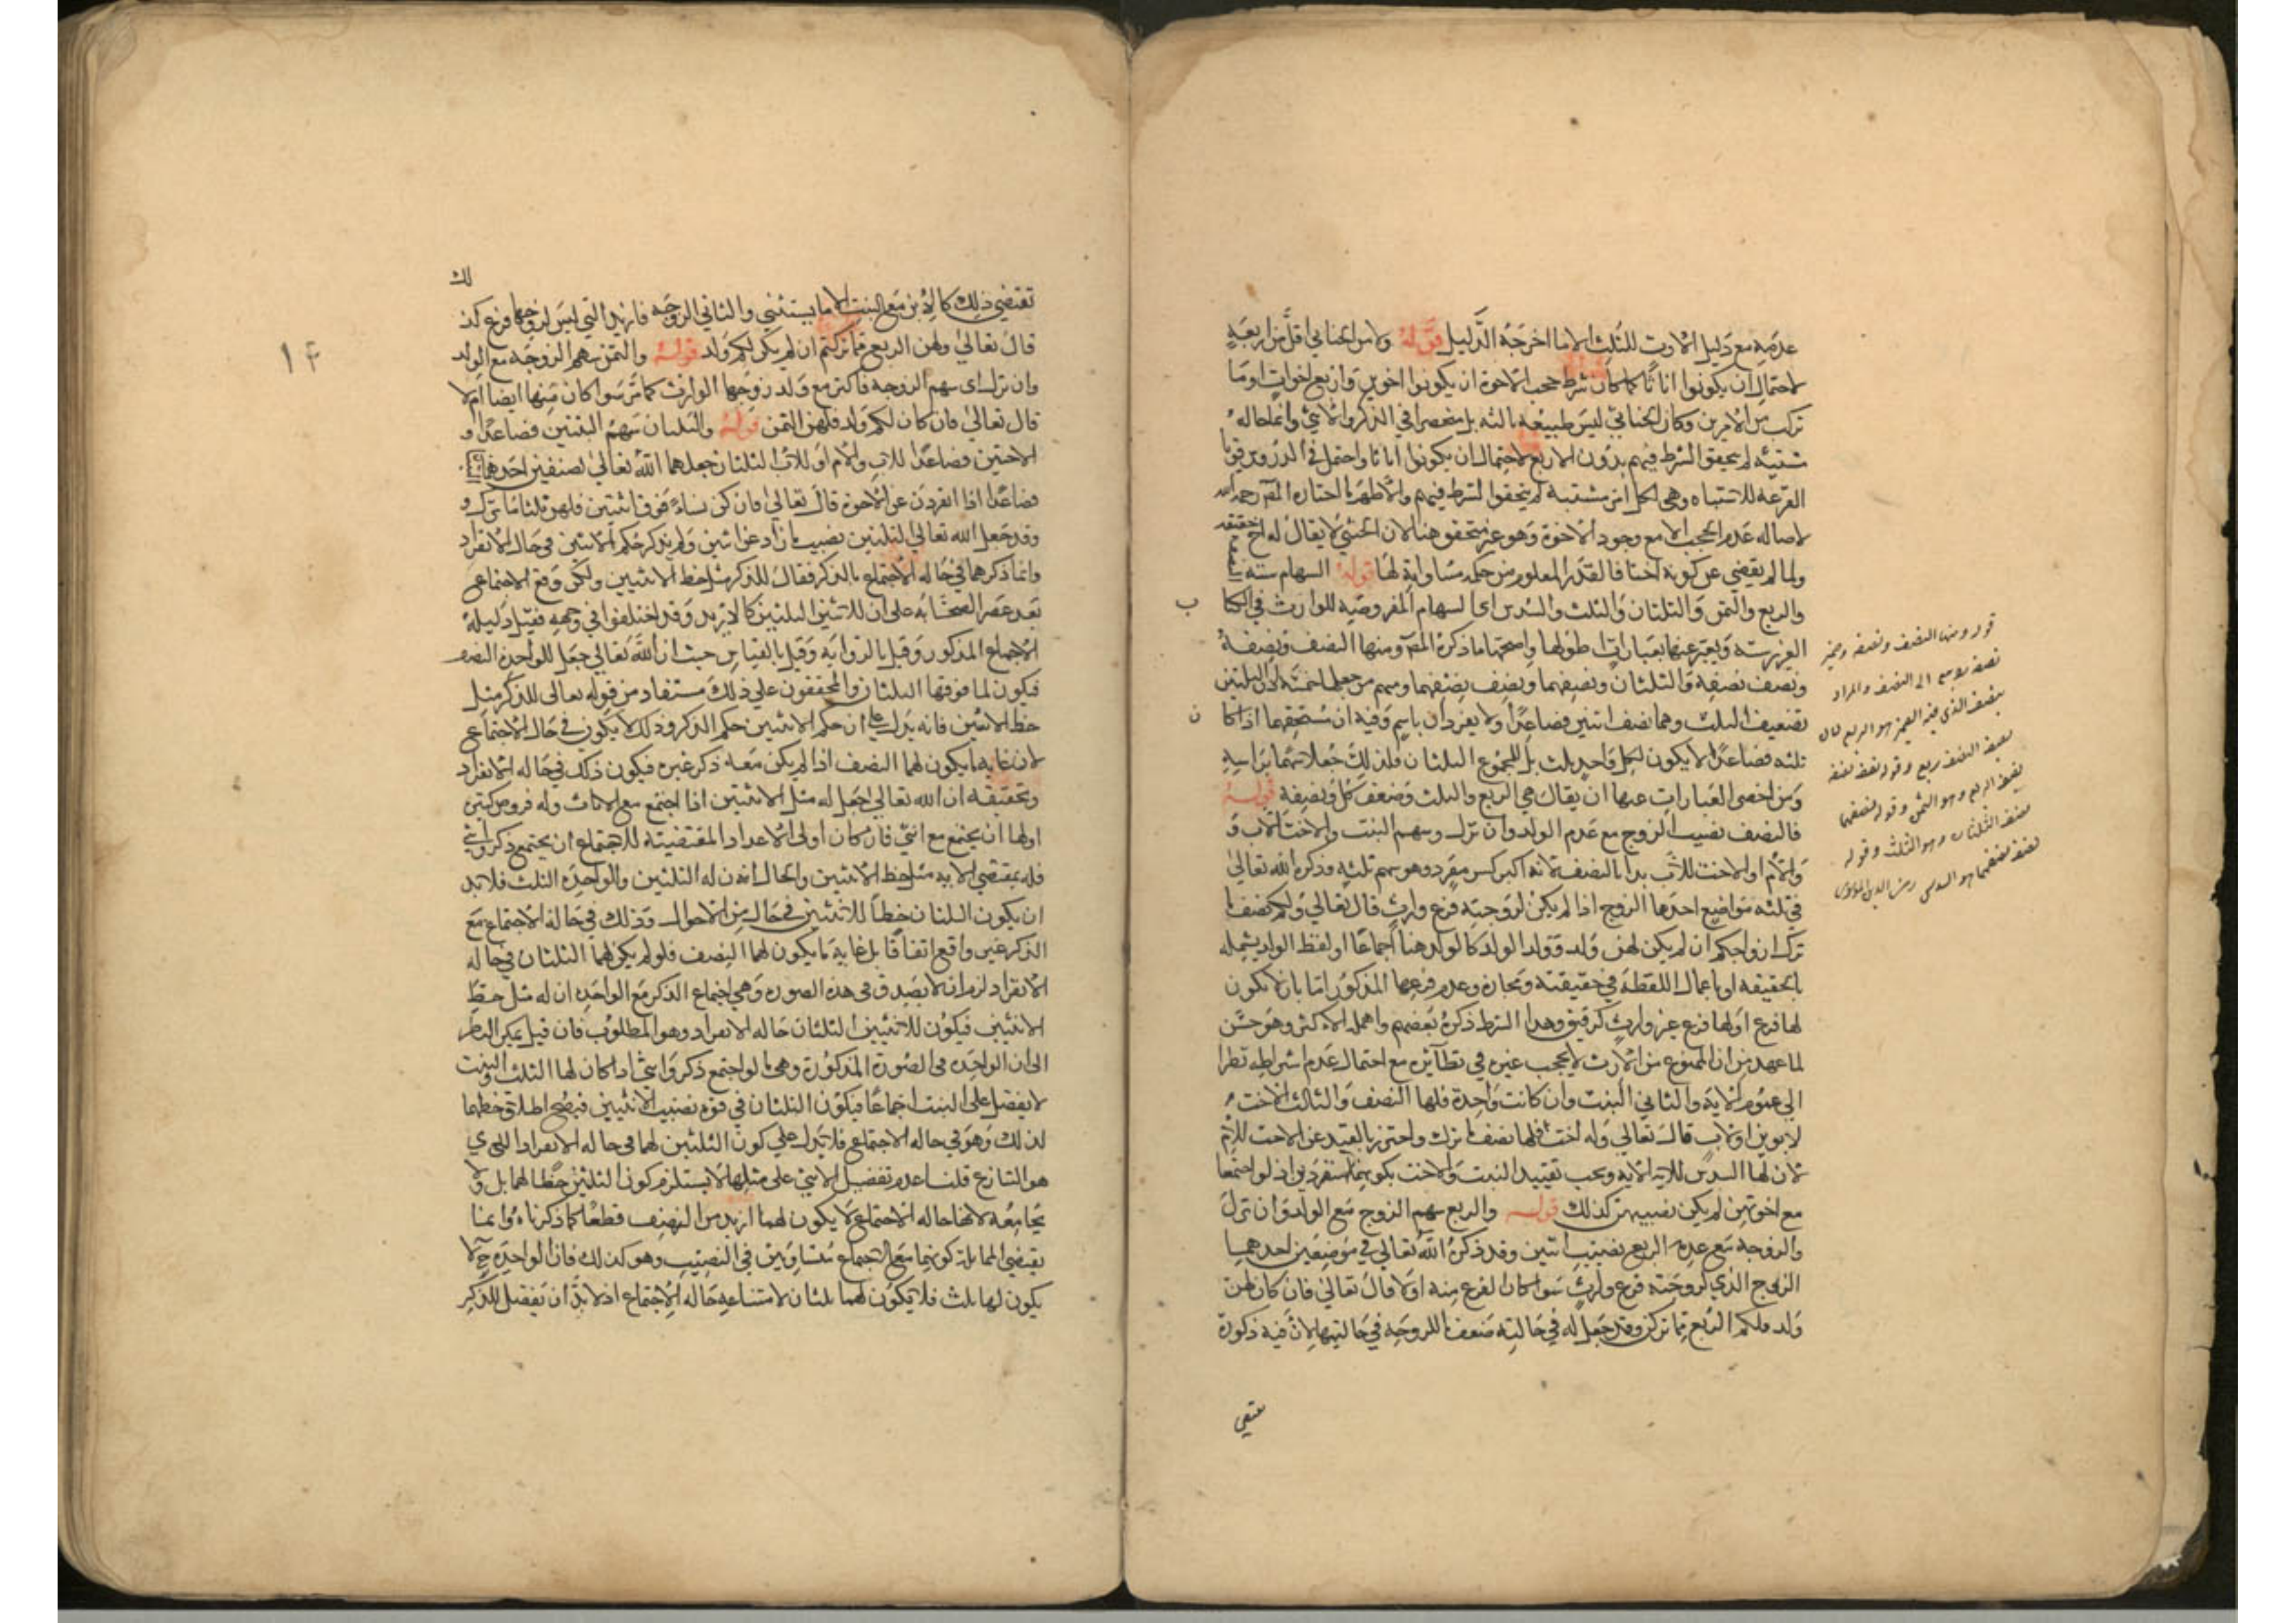 عدمه مع دليل الارث للثلث الا ما اخرجه الدليل قوله ولا من الخناثى اقل من اربعة
لاحتمال ان يكونوا اناثا كما كان شرط حجب الاخوة ان يكونوا اخوين او اربع اخوات او ما
تركب من الامرين وكان الخناثى ليس طبيعة ثالثة بل منحصرا في الذكر والانثى وانما حاله
مشتبه لم يتحقق الشرط فيهم بدون الاربع لاحتمال ان يكونوا اناثا واحتمل في الدروس قويا
القرعة للاشتباه وهي لكل امر مشتبه لم يتحقق الشرط فيهم والاظهر ما اختاره المص رحمه الله
لاصاله عدم الحجب الا مع وجود الاخوة وهو غير متحقق هنا لان الخنثى لا يقال له اخ حقيقة
ولما لم يقضي عن كونه اختا فالقدر المعلوم من حكمه مساواته لها قوله السهام ستة النصف
والربع والثمن والثلثان والثلث والسدس اي السهام المفروضة للوارث في الكتا ب
العزيز ستة ويعبر عنها بعبارات اطولها واصحها ما ذكره المص ومنها النصف ونصفه
ونصف نصفه والثلثان ونصفهما ونصف نصفهما ومنهم من جعلها خمسة لان الثلثين
تضعيف الثلث وهما نصف اثنين فصاعدا ولا يفردان باسم وفيه ان مستحقها اذا كا ن
ثلثه فصاعدا لا يكون لكل واحد ثلث بل للمجموع الثلثان فلذلك جعلا سهما براسه
ومن اخصر العبارات عنها ان يقال هي الربع والثلث وضعف كل ونصفه قوله
فالنصف نصيب الزوج مع عدم الولد وان نزل وسهم البنت والاخت للاب و
والام او الاخت للاب بدا بالنصف لانه اكبر كسر مفرد وهو سهم ثلثه وذكره الله تعالى
في ثلثه مواضيع احدها الزوج اذا لم يكن لزوجته فرع وارث قال تعالى ولكم نصف ما
ترك ازواجكم ان لم يكن لهن ولد وولد الولد كالولد هنا اجماعا او لفظ الولد يشمله
بالحقيقه او باعمال اللفظه في حقيقته ومجازه وعدم فرعها المذكور اما بان لا يكون
لها فرع او لها فرع غير وارث كرقيق وهذا الشرط ذكره بعضهم واهمله الاكثر وهو حسن
لما عهد من ان الممنوع من الارث لا يحجب غيره في نظائره مع احتمال عدم اشتراطه نظرا
الى عموم الآيه والثاني البنت وان كانت واحدة فلها النصف والثالث الاخت
لابوين او لاب قال تعالى وله اخت فلها نصف ما ترك واحترز بالقيد عن الاخت للام
لان لها السدس للايه الاتيه ويجب تقييد البنت والاخت بكونهما منفردين اذ لو اجتمعا
مع اخوتهن لم يكن نصيبهن كذلك قوله والربع سهم الزوج مع الولد وان نزل
والزوجه مع عدمه الربع نصيب اثنين وقد ذكره الله تعالى في موضعين احدهما
الزوج الذي لزوجته فرع وارث سوا كان الفرع منه او لا قال تعالى فان كان لهن
ولد فلكم الربع مما تركن وقد جعل له في حالتيه ضعف ما للزوجه في حالتيها لان فيه ذكورة
تقتضي
قوله ومنها النصف ونصفه وضمير
نصفه يوسى الى النصف والمراد
بنصف الذي فيه الضمير هو الربع لان
نصف النصف ربع وقوله نصف نصفه
نصف الربع وهو الثمن وقوله نصفهما
نصف الثلثان وهو الثلث وقوله
نصف نصفهما هو السدس
١٤
تقتضي ذلك كالابن مع البنت الا ما يستثنى والثاني الزوجه فازيد التي ليس لزوجها فرع كذلك
قال تعالى ولهن الربع مما تركتم ان لم يكن لكم ولد قوله والثمن سهم الزوجه مع الولد
وان نزل اي سهم الزوجه فاكثر مع ولد زوجها الوارث كما مر سوا كان منها ايضا ام لا
قال تعالى فان كان لكم ولد فلهن الثمن قوله والثلثان سهم البنتين فصاعدا و
الاختين فصاعدا للاب والام او للاب الثلثان جعلهما الله تعالى لصنفين احدهما
فصاعدا اذا انفردن عن الاخوة قال تعالى فان كن نساء فوق اثنتين فلهن ثلثا ما ترك و
وقد جعل الله تعالى الثلثين نصيب ما زاد عن اثنتين ولم يذكر حكم الاثنتين في حال الانفراد
وانما ذكرهما في حاله الاجتماع بالذكر فقال للذكر مثل حظ الانثيين ولكن وقع الاجتماع
بعد عصر الصحابه على ان للاثنتين الثلثين كالازيد وقد اختلفوا في وجهه فقيل دليله
الاجماع المذكور وقيل بالروايه وقيل بالقياس حيث ان الله تعالى جعل للواحده النصف
فيكون لما فوقها الثلثان والمحققون على ذلك مستفاد من قوله تعالى للذكر مثل
حظ الانثيين فانه يدل على ان حكم الانثيين حكم الذكر وذلك لا يكون في حال الاجتماع
لان غايه ما يكون لهما النصف اذا لم يكن معه ذكر غيره فيكون ذلك في حاله الانفراد
وتحقيقه ان الله تعالى جعل له مثل الانثيين اذا اجتمع مع الاناث وله فروض كثيرة
اولها ان يجتمع مع انثى فان كان اولى الاعداد المقتضيه للاجتماع ان يجتمع ذكر وانثى
فله بمقتضى الايه مثل حظ الانثيين والحال ان له الثلثين وللواحده الثلث فلابد
ان يكون الثلثان حظا للانثيين في حال من الاحوال وذلك في حاله الاجتماع مع
الذكر غير واقع اتفاقا بل غايه ما يكون لهما النصف فلو لم يكن لهما الثلثان في حاله
الانفراد لزم ان لا يصدق في هذه الصوره وهي اجتماع الذكر مع الواحده ان له مثل حظ
الانثيين فيكون للانثيين الثلثان حاله الانفراد وهو المطلوب فان قيل يمكن النظر
الى ان الواحده في الصورة المذكورة وهي ما لو اجتمع ذكر وانثى اذا كان لها الثلث والبنت
لا يفضل على البنت اجماعا فيكون الثلثان في قوة نصيب الانثيين فيصح اطلاق حظهما
لذلك وهو في حاله الاجتماع فلا يدل على كون الثلثين لهما في حاله الانفراد الذي
هو المتنازع قلنا عدم تفضيل الانثى على مثلها لا يستلزم كون الثلثين حظا لهما بل ولا
يجامعه لانها حاله الاجتماع لا يكون لهما ازيد من النصف قطعا كما ذكرناه وانما
يقتضي المماثلة كونهما مع الاجتماع متساويين في النصيب وهو كذلك فان الواحده ح لا
يكون لها ثلث فلا يكون لهما ثلثان لامتناعه حاله الاجتماع اذ لا بد ان تفضل للذكر